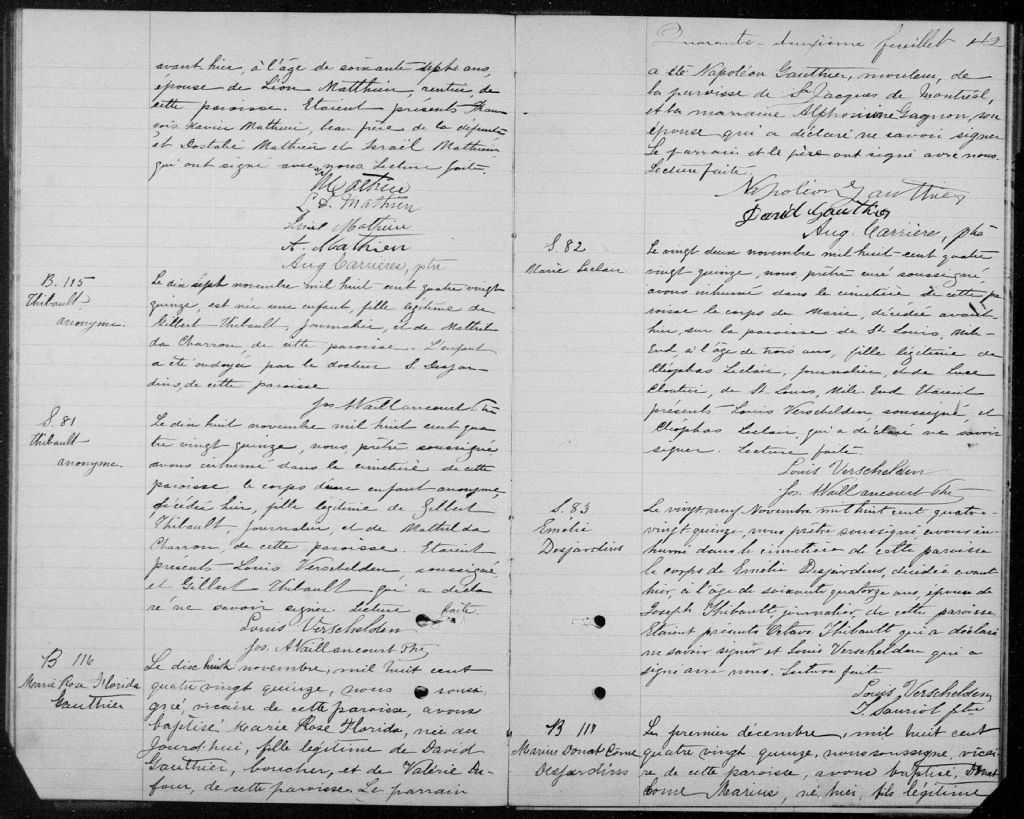 avant hier, à l'âge de soixante sept ans,
épouse de Léon Matthieu, rentier, de
cette paroisse. Etaient présents Fran
cois Xavier Mathieu, beau frère de la défunte
et Dostalie Mathieu et Israël Mathieu
qui ont signé avec nous. Lecture faite.
Mathieu
L. S. Mathieu
Israel Mathieu
A. Mathieu
Aug Carrieres, ptre
B. 115
Thibault
anonyme.
Le dix sept novembre mil huit cent quatre vingt
quinze, est née une enfant, fille légitime de
Gilbert Thibault, journalier, et de Mathil
da Charron, de cette paroisse. L'enfant
a été ondoyée par le docteur S. Desjar-
dins, de cette paroisse.
Jos. A Vaillancourt Ptre
S. 81
Thibault
anonyme.
Le dix huit novembre mil huit cent qua
tre vingt quinze, nous, prêtre soussigné
avons inhumé dans le cimetière de cette
paroisse, le corps d'une enfant anonyme,
décédée hier, fille légitime de Gilbert
Thibault, journalier, et de Mathilda
Charron, de cette paroisse. Etaient
présents Louis Verschelden, soussigné,
et Gilbert Thibault qui a décla
ré ne savoir signer. Lecture faite.
Louis Verschelden
Jos. A Vaillancourt Ptre
B 116
Marie Rose Florida
Gauthier
Le dix huit novembre, mil huit cent
quatre vingt quinze, nous sous
gné, vicaire de cette paroisse, avons
baptisé Marie Rose Florida, née au
jourd'hui, fille légitime de David
Gauthier, boucher, et de Valérie Du-
four, de cette paroisse. Le parrain
Quarante-deuxième feuillet 42
a été Napoléon Gauthier, mouleur, de
la paroisse de St Jacques de Montréal,
et la marraine Alphonsine Gagnon, son
épouse qui a déclaré ne savoir signer
Le parrain et le père ont signé avec nous.
Lecture faite.
Napoléon Gauthier
David Gauthier
Aug. Carriere, ptre
S. 82
Marie Leclair
Le vingt deux novembre mil huit cent quatre
vingt quinze, nous, prêtre curé soussigné,
avons inhumé dans le cimetière, de cette pa
roisse le corps de Marie, décédée avant
hier, sur la paroisse de St Louis, Mile-
End, à l'âge de trois ans, fille légitime de
Cléophas Leclair, journalier, et de Luce
Cloutier, de St Louis, Mile End. Etaient
présents Louis Verschelden soussigné, et
Cléophas Leclair, qui a déclaré ne savoir
signer. Lecture faite.
Louis Verschelden
Jos. A Vaillancourt Ptre
S. 83
Emélie
Desjardins
Le vingt neuf Novembre mil huit cent quatre-
vingt quinze, nous prêtre soussigné avons in-
humé dans le cimetière de cette paroisse
le corps de Emélie Desjardins, décédée avant
hier, à l'âge de soixante quatorze ans, épouse de
Joseph Thibault, journalier, de cette paroisse.
Etaient présents Octave Thibault qui a déclaré
ne savoir signer et Louis Verschelden qui a
signé avec nous. Lecture faite
Louis Verschelden
ptre
B 117
Marius Donat Come
Desjardins
Le premier décembre, mil huit cent
quatre vingt quinze, nous soussigné, vicai
re de cette paroisse, avons baptisé, Donat
Come Marius, né hier, fils légitime